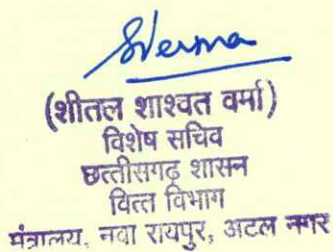 SVerma
(शीतल शाश्वत वर्मा)
विशेष सचिव
छत्तीसगढ़ शासन
वित्त विभाग
मंत्रालय, नवा रायपुर, अटल नगर